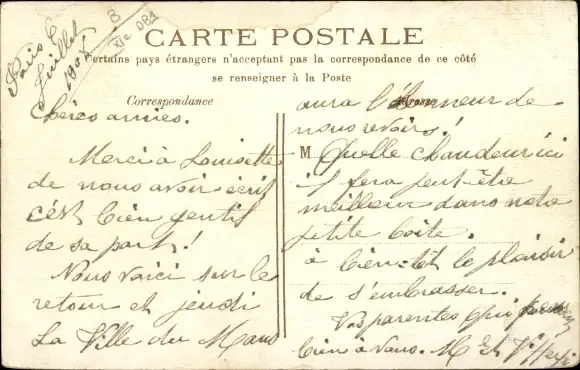 Paris
Juillet
190
8
XIe D81
CARTE POSTALE
Certains pays étrangers n'acceptent pas la correspondance de ce côté
se renseigner à la Poste
Correspondance
Adresse
Chères amies.
Merci à Louisette
de nous avoir écrit
c'est bien gentil
de sa part!
Nous voici sur le
retour et jeudi
La Ville du Mans
aura l'honneur de
nous revoir!
M
Quelle chaleur ici
il fera peut-être
meilleur dans notre
petite boîte.
à bientôt le plaisir
de s'embrasser.
Vos parentes qui
bien à vous. M et